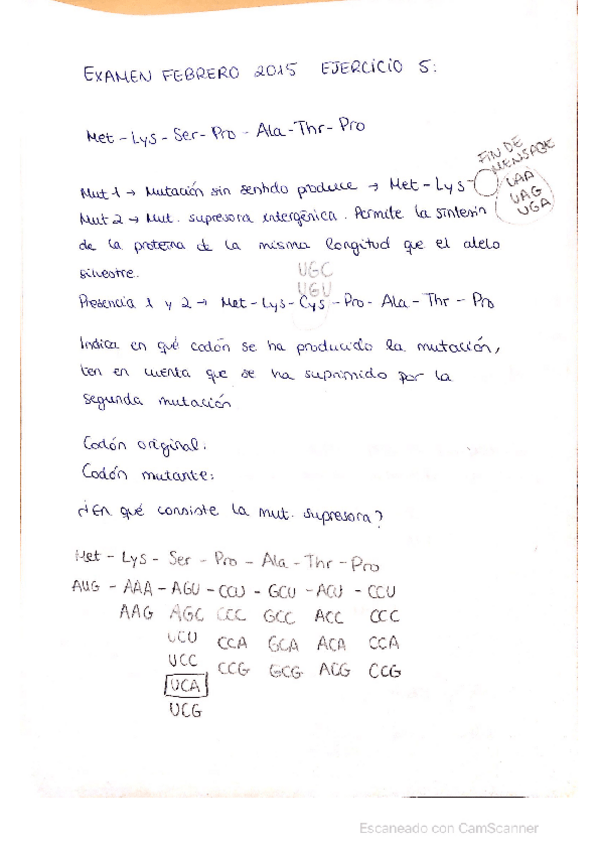 EXAMEN FEBRERO 2015 EJERCICIO 5:
Met - Lys - Ser - Pro - Ala - Thr - Pro
FIN DE
MENSAJE
Mut 1 → Mutación sin sentido produce → Met - Lys -
UAA
UAG
UGA
Mut 2 → Mut. supresora intergénica. Permite la síntesis
de la proteína de la misma longitud que el alelo
silvestre.
UGC
UGU
Presencia 1 y 2 → Met - Lys - Cys - Pro - Ala - Thr - Pro
Indica en qué codón se ha producido la mutación,
ten en cuenta que se ha suprimido por la
segunda mutación
Codón original:
Codón mutante:
¿En qué consiste la mut. supresora?
Met - Lys - Ser - Pro - Ala - Thr - Pro
AUG - AAA - AGU - CCU - GCU - ACU - CCU
AAG AGC CCC GCC ACC CCC
UCU CCA GCA ACA CCA
UCC CCG GCG ACG CCG
UCA
UCG
Escaneado con CamScanner